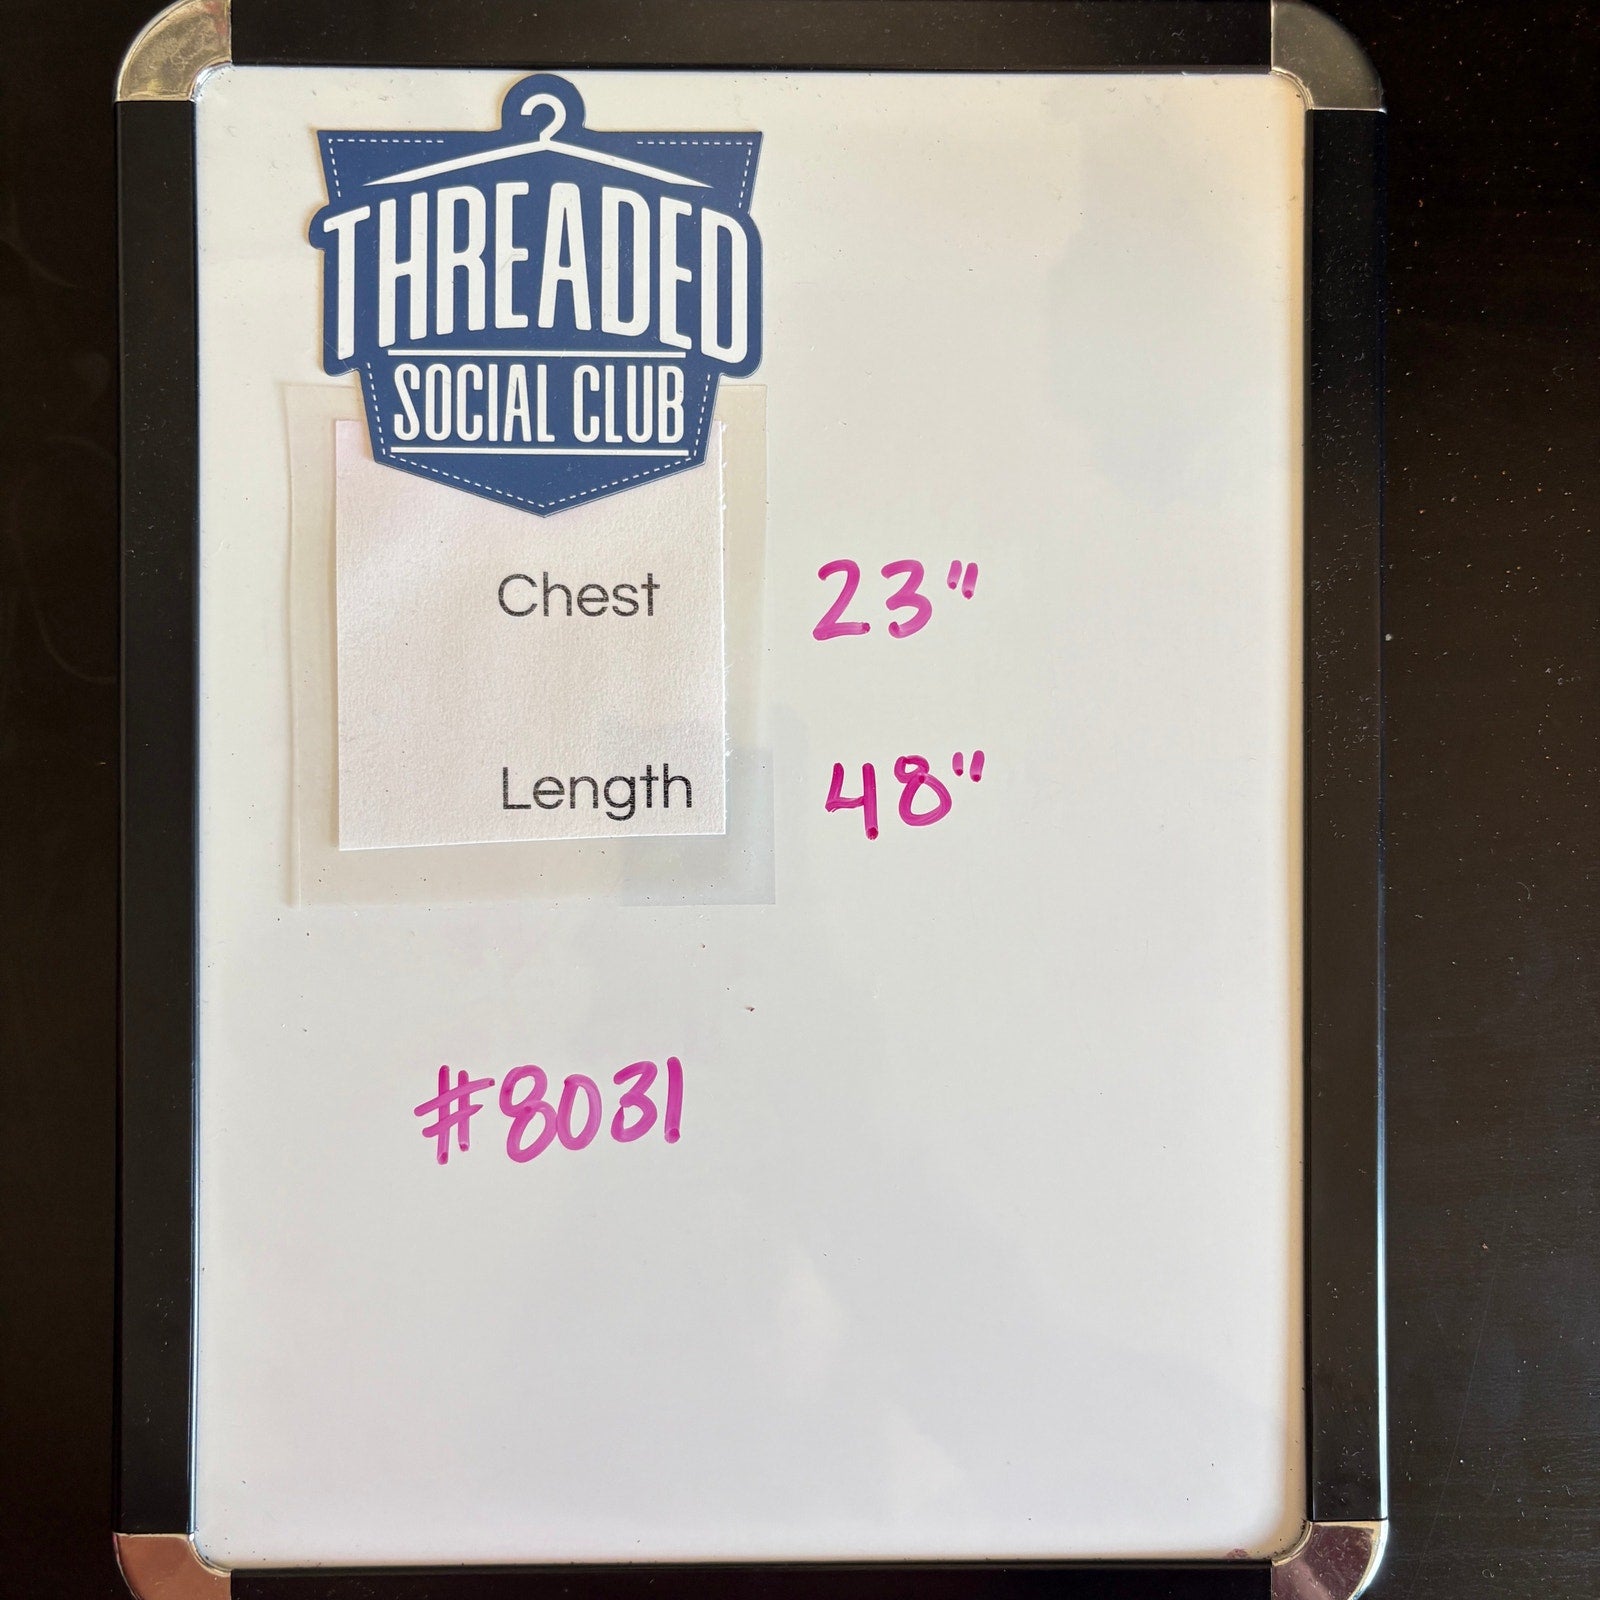 THREADED
SOCIAL CLUB
Chest 23"
Length 48"
#8031